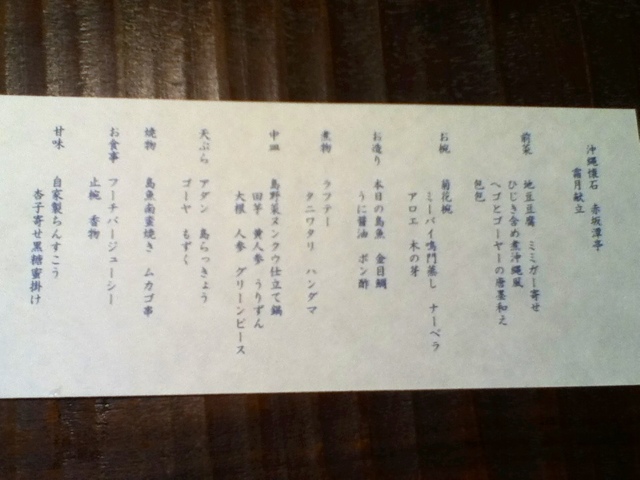 沖縄懐石 赤坂潭亭
霜月献立
前菜 地豆豆腐 ミミガー寄せ
ひじき含め煮沖縄風
ヘゴとゴーヤーの唐墨和え
包包
お椀 菊花椀
ミーバイ鳴門蒸し ナーベラ
アロエ 木の芽
お造り 本日の島魚 金目鯛
うに醤油 ポン酢
煮物 ラフテー
タニワタリ ハンダマ
中皿 島野菜ヌンクウ仕立て鍋
田芋 黄人参 うりずん
大根 人参 グリーンピース
天ぷら アダン 島らっきょう
ゴーヤ もずく
焼物 島魚南蛮焼き ムカゴ串
お食事 フーチバージューシー
止椀 香物
甘味 自家製ちんすこう
杏子寄せ黒糖蜜掛け